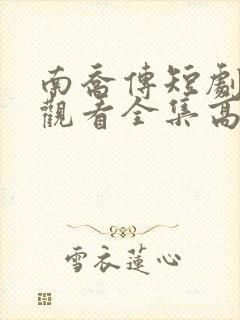 南喬傳短劇
觀看全集高
雪衣蓮心